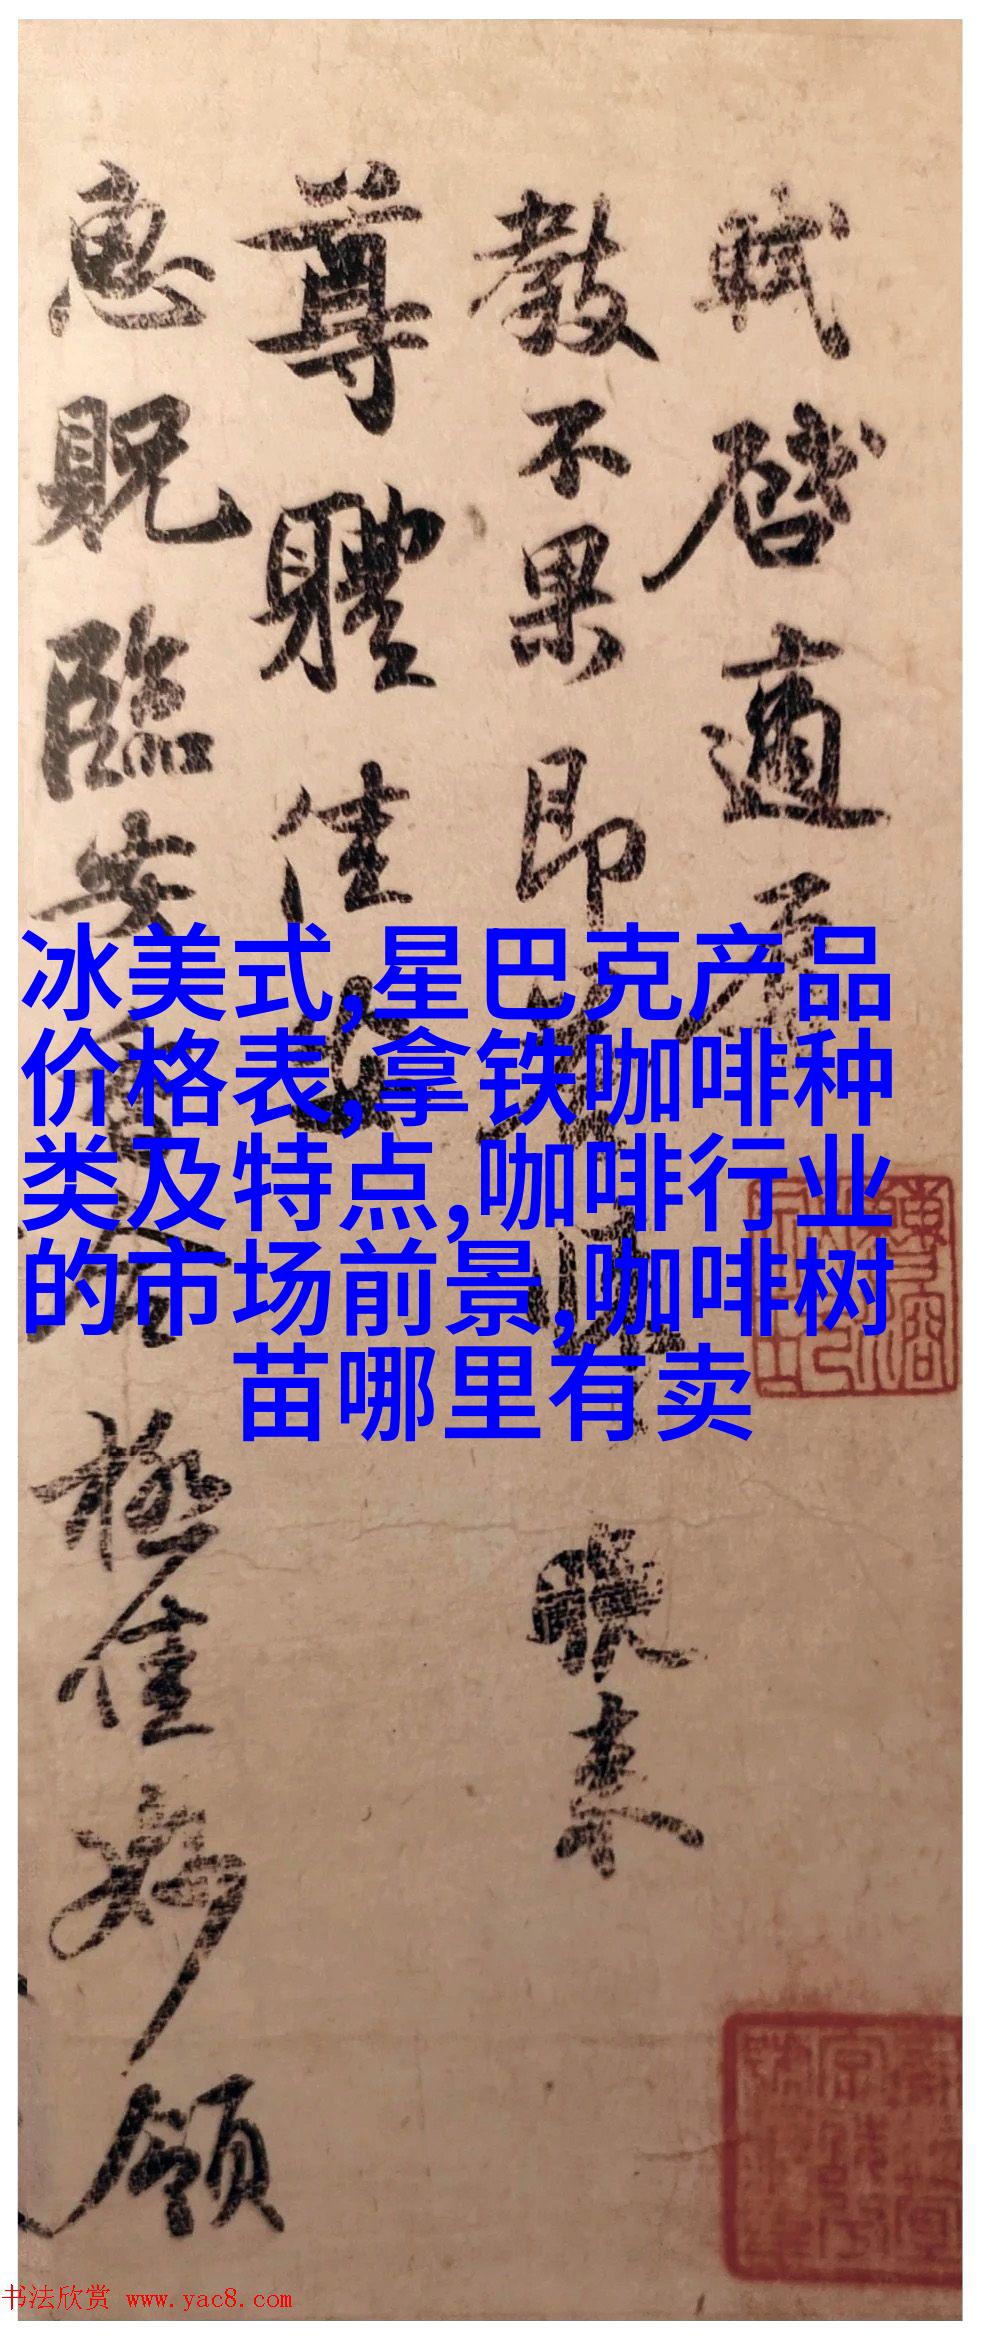 軾啓適
教不果即
晚来
尊體佳
惠貺臨安
極佳妙領
冰美式,星巴克产品
价格表,拿铁咖啡种
类及特点,咖啡行业
的市场前景,咖啡树
苗哪里有卖
书法欣赏 www.yac8.com